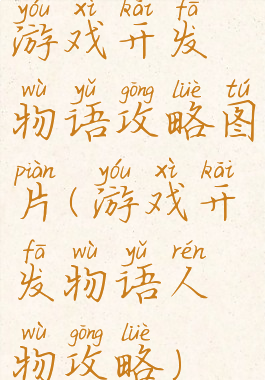 yóu xì kāi fā
游戏开发
wù yǔ gōng lüè tú
物语攻略图
piàn yóu xì kāi
片(游戏开
fā wù yǔ rén
发物语人
wù gōng lüè
物攻略)